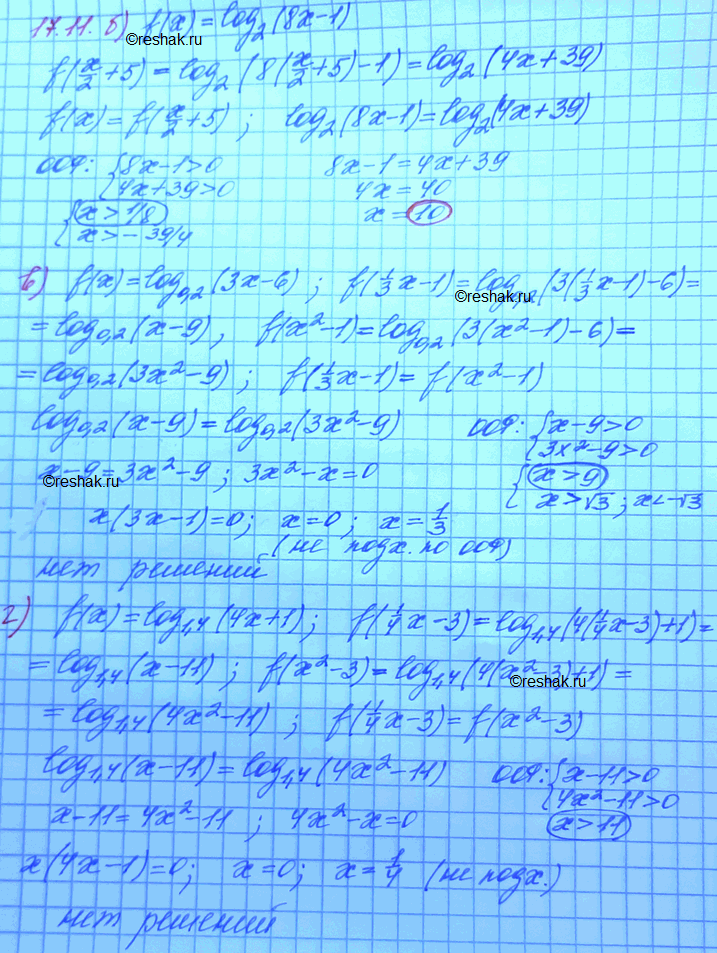 17.11. б) f(x) = log₂(8x-1)
©reshak.ru
f(x/2+5) = log₂(8(x/2+5)-1) = log₂(4x+39)
f(x) = f(x/2+5); log₂(8x-1) = log₂(4x+39)
ООФ: {8x-1>0 8x-1 = 4x+39
{4x+39>0 4x = 40
{x>1/8 x = 10
{x>-39/4
в) f(x) = log₀,₂(3x-6); f(1/3x-1) = log₀,₂(3(1/3x-1)-6) =
©reshak.ru
= log₀,₂(x-9), f(x²-1) = log₀,₂(3(x²-1)-6) =
= log₀,₂(3x²-9); f(1/3x-1) = f(x²-1)
log₀,₂(x-9) = log₀,₂(3x²-9) ООФ: {x-9>0
{3x²-9>0
x-9 = 3x²-9; 3x²-x=0 {x>9
©reshak.ru
{x>√3; x<-√3
x(3x-1)=0; x=0; x=1/3
(не подх. по ООФ)
нет решений
г) f(x) = log₁,₄(4x+1); f(1/4x-3) = log₁,₄(4(1/4x-3)+1) =
= log₁,₄(x-11); f(x²-3) = log₁,₄(4(x²-3)+1) =
©reshak.ru
= log₁,₄(4x²-11); f(1/4x-3) = f(x²-3)
log₁,₄(x-11) = log₁,₄(4x²-11) ООФ: {x-11>0
{4x²-11>0
x-11 = 4x²-11; 4x²-x=0 x>11
x(4x-1)=0; x=0; x=1/4 (не подх.)
нет решений